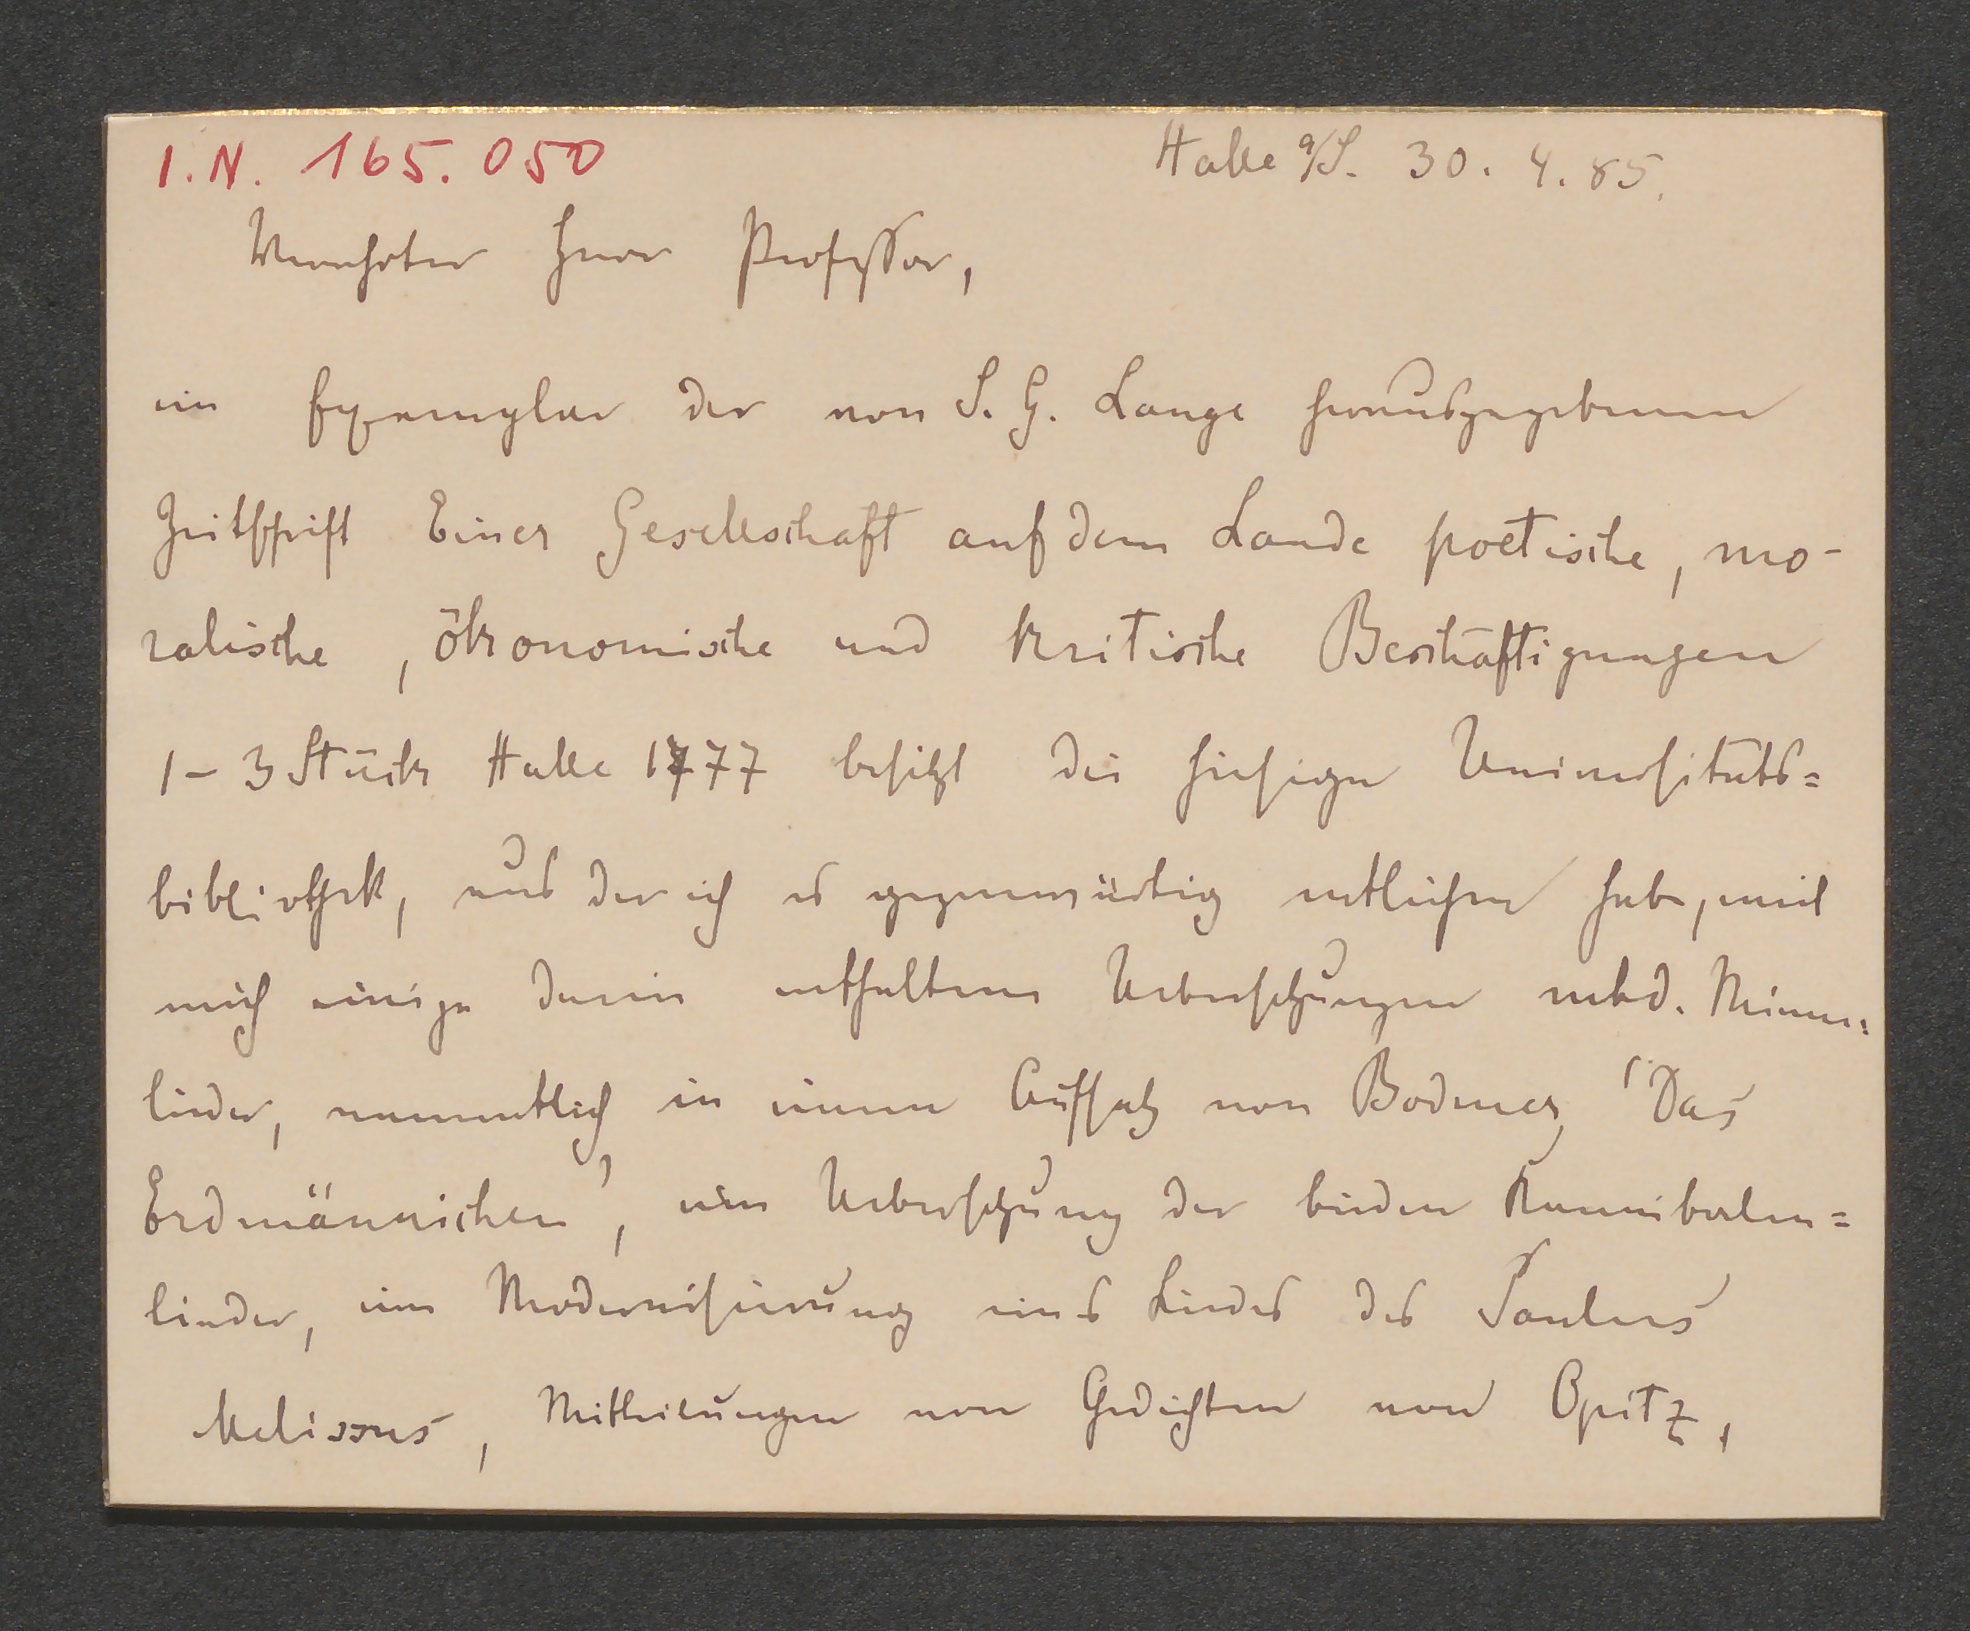 I.N. 165.050
Halle a/S. 30. 4. 85.
Verehrter Herr Professor,
ein Exemplar der von S. G. Lange herausgegebenen
Zeitschrift Einer Gesellschaft auf dem Lande poetische, mo-
ralische, ökonomische und kritische Beschäftigungen
1–3 Stück Halle 1777 besitzt die hiesige Universitäts=
bibliothek, aus der ich es gegenwärtig entliehen habe, weil
mich einige darin enthaltene Uebersetzungen mhd. Minne=
lieder, namentlich in einem Aufsatz von Bodmer, "Das
Erdmännichen", eine Uebersetzung der beiden Kannibalen=
lieder, eine Modernisierung eines Liedes des Paulus
Melissus, Mittheilungen von Gedichten von Opitz,